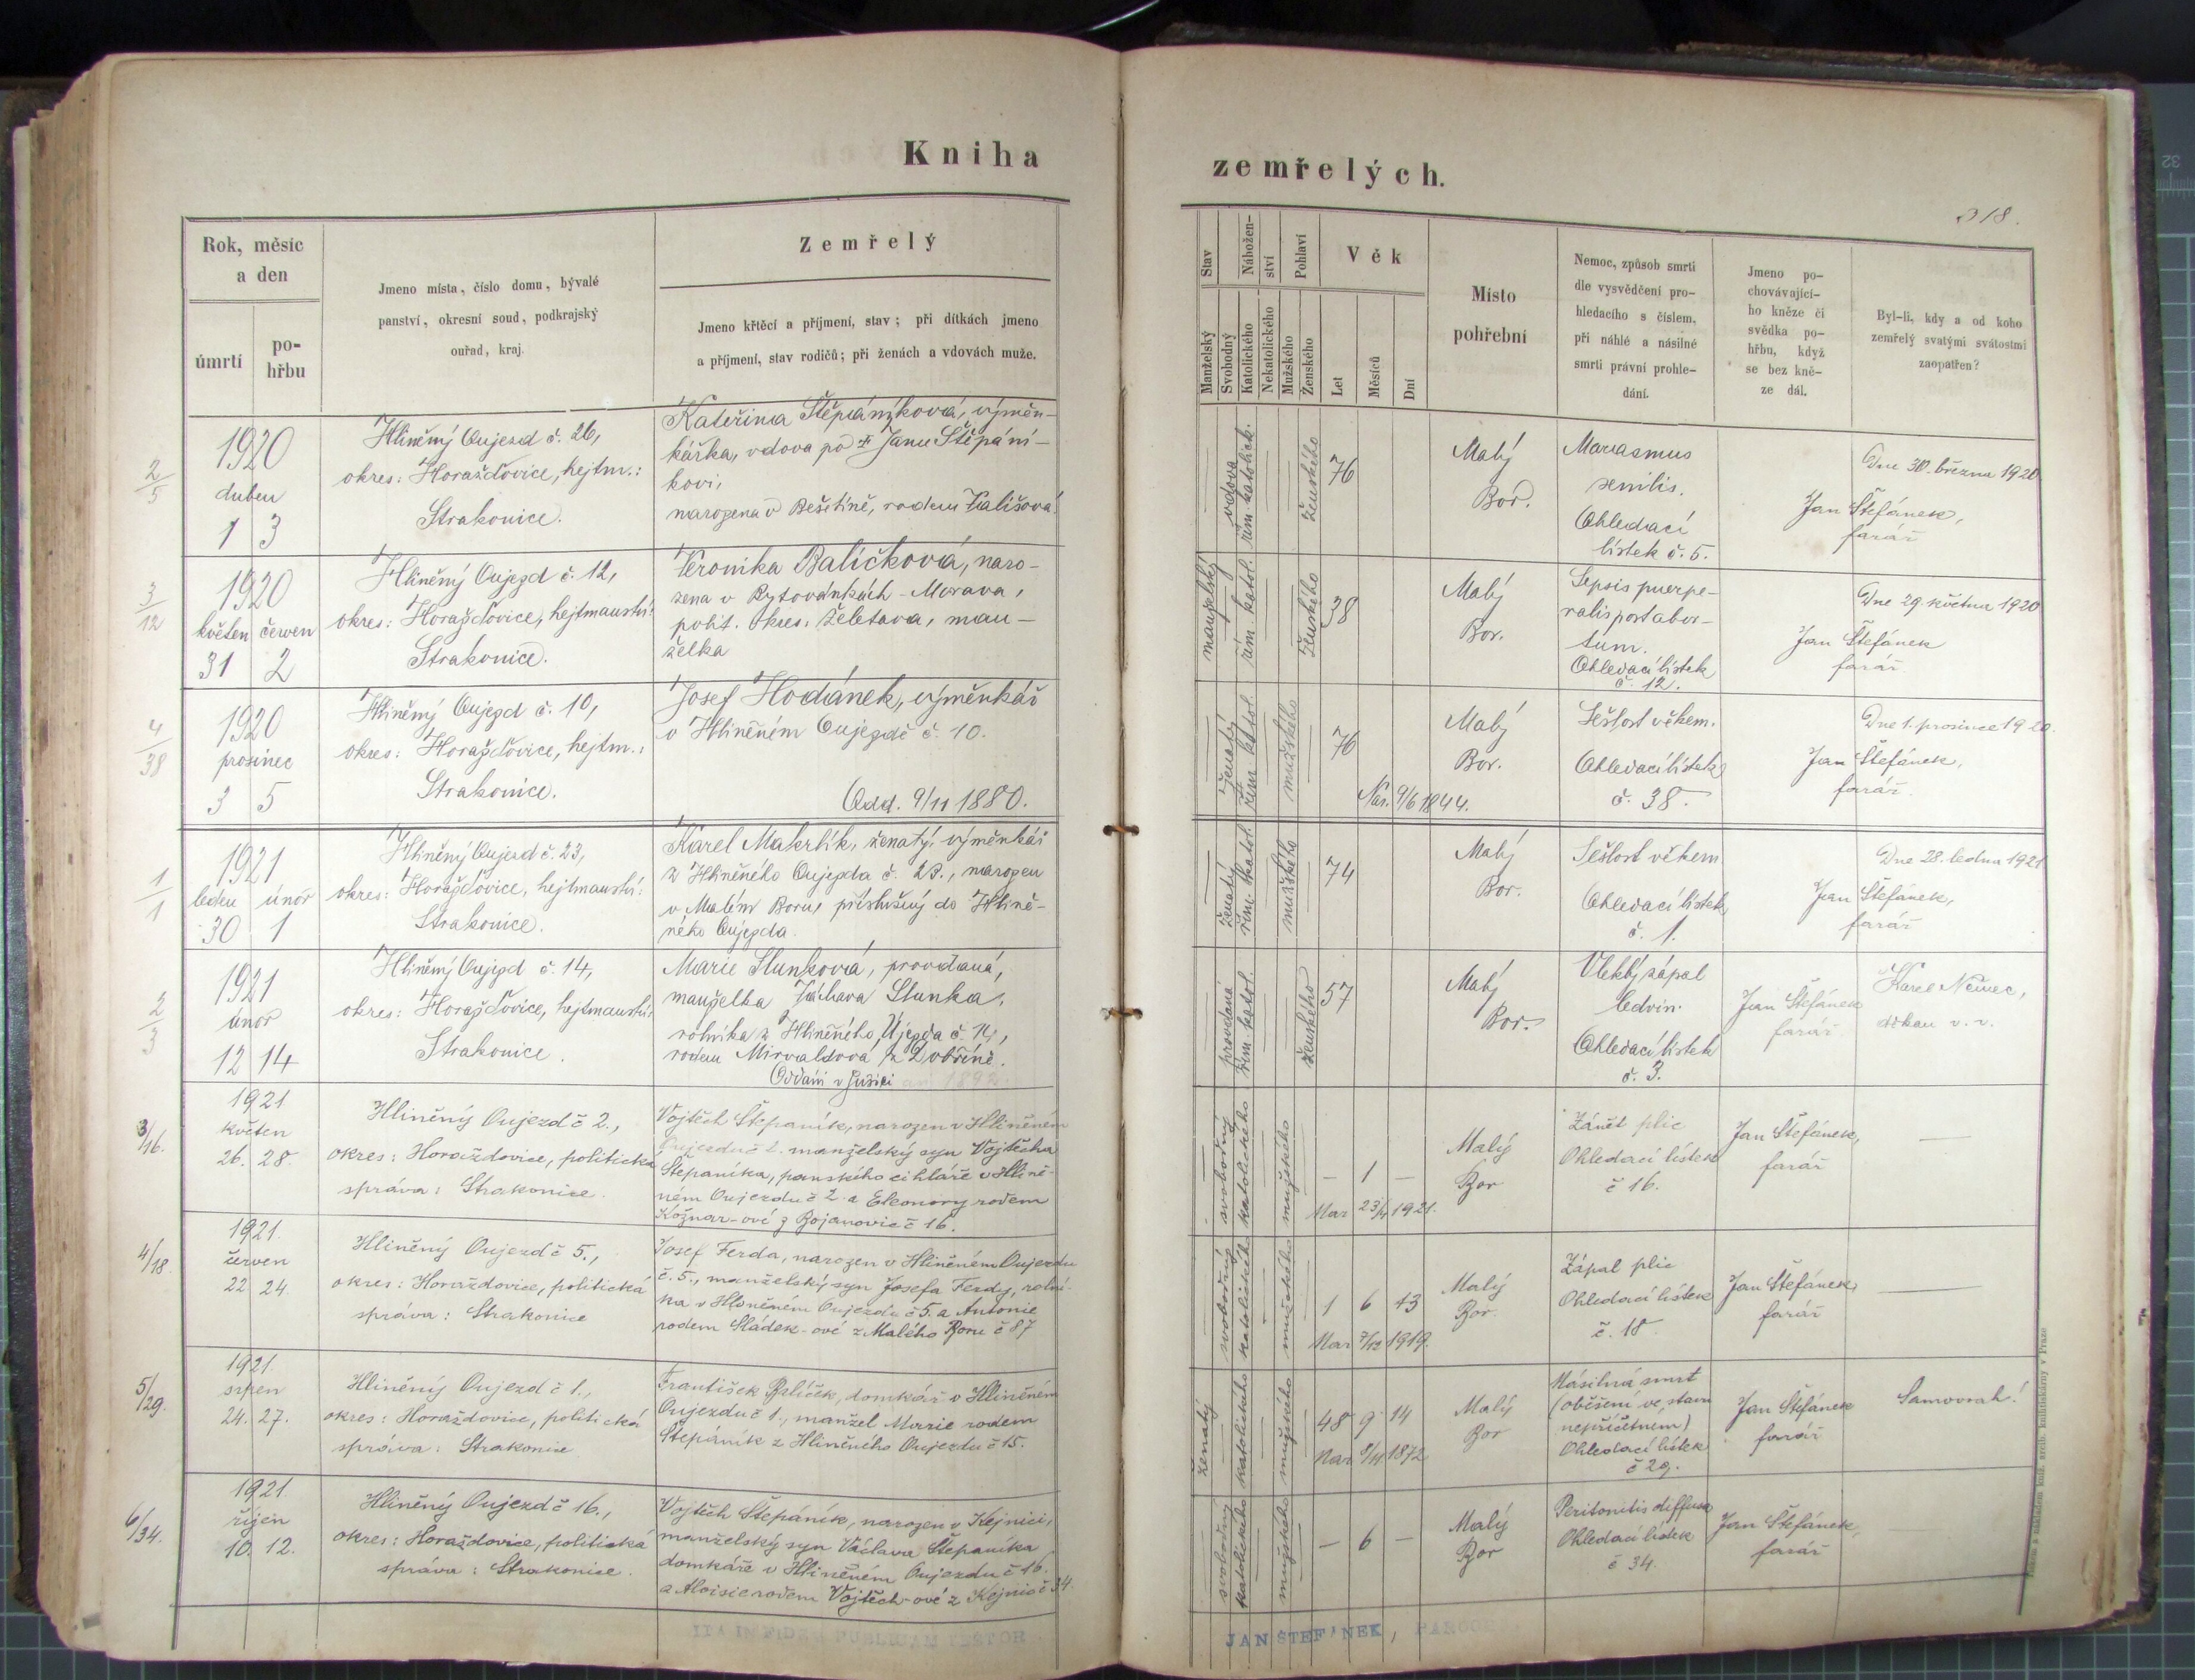 Kniha
zemřelých.
318.
Rok, měsíc
a den
úmrtí
po-
hřbu
Jmeno místa, číslo domu, bývalé
panství, okresní soud, podkrajský
ouřad, kraj.
Zemřelý
Jmeno křtěcí a příjmení, stav; při dítkách jmeno
a příjmení, stav rodičů; při ženách a vdovách muže.
Stav
Nábožen-
ství
Pohlaví
Manželský
Svobodný
Katolického
Nekatolického
Mužského
Ženského
Věk
Let
Měsíců
Dní
Místo
pohřební
Nemoc, způsob smrti
dle vysvědčení pro-
hledacího s číslem,
při náhlé a násilné
smrti právní prohle-
dání.
Jmeno po-
chovávající-
ho kněze či
svědka po-
hřbu, když
se bez kně-
ze dál.
Byl-li, kdy a od koho
zemřelý svatými svátostmi
zaopatřen?
2/5
1920
duben
1 3
Hliněný Oujezd č. 26,
okres: Horažďovice, hejtm.:
Strakonice.
Kateřina Štěpáníková, výměn-
kářka, vdova po † Janu Štěpání-
kovi,
narozena v Bešetíně, rodem Kališová.
vdova
řím. katolick.
ženského
76
Malý
Bor.
Marasmus
senilis.
Ohledací
lístek č. 5.
Dne 30. března 1920
Jan Štefánek,
farář
3/12
1920
květen červen
31 2
Hliněný Oujezd č. 12,
okres: Horažďovice, hejtmanství:
Strakonice.
Veronika Balíčková, naro-
zena v Rytovánkách - Morava,
polit. okres: Želetava, man-
želka
manželský
řím. katol.
ženského
38
Malý
Bor.
Sepsis puerpe-
ralis post abor-
tum.
Ohledací lístek
č. 12.
Dne 29. května 1920
Jan Štefánek
farář
4/38
1920
prosinec
3 5
Hliněný Oujezd č. 10,
okres: Horažďovice, hejtm.:
Strakonice.
Josef Hodánek, výměnkář
v Hliněném Oujezdě č. 10.
Odd. 9/11 1880.
ženatý
řím. katol.
mužského
76
Nar. 9/6 1844.
Malý
Bor.
Sešlost věkem.
Ohledací lístek
č. 38.
Dne 1. prosince 1920.
Jan Štefánek,
farář.
1/1
1921
leden únor
30 1
Hliněný Oujezd č. 23,
okres: Horažďovice, hejtmanství:
Strakonice.
Karel Makrlík, ženatý, výměnkář
z Hliněného Oujezda č. 23., narozen
v Malém Boru, příslušný do Hlině-
ného Oujezda.
ženatý
řím. katol.
mužského
74
Malý
Bor.
Sešlost věkem
Ohledací lístek
č. 1.
Dne 28. ledna 1921
Jan Štefánek,
farář
2/3
1921
únor
12 14
Hliněný Oujezd č. 14,
okres: Horažďovice, hejtmanství:
Strakonice.
Marie Slunková, provdaná,
manželka Václava Slunka,
rolníka z Hliněného Újezda č. 14,
rodem Mirvaldová z Dobříně.
Oddáni v Sušici 1892.
provdaná
řím. katol.
ženského
57
Malý
Bor.
Vleklý zápal
ledvin.
Ohledací lístek
č. 3.
Jan Štefánek
farář
Karel Němec,
děkan v. v.
3/16.
1921
květen
26. 28.
Hliněný Oujezd č 2.,
okres: Horažďovice, politická
správa: Strakonice.
Vojtěch Štěpaník, narozen v Hliněném
Oujezdu č 2. manželský syn Vojtěcha
Štěpaníka, panského cihláře v Hlině-
ném Oujezdu č 2. a Eleonory rodem
Kožnar-ové z Bojanovic č 16.
svobodný
katolického
mužského
— 1 —
Nar 23/4 1921.
Malý
Bor
Zánět plic
Ohledací lístek
č 16.
Jan Štefánek,
farář
—
4/18.
1921.
červen
22 24.
Hliněný Oujezd č 5.,
okres: Horažďovice, politická
správa: Strakonice
Josef Ferda, narozen v Hliněném Oujezdu
č. 5., manželský syn Josefa Ferdy, rolní-
ka v Hliněném Oujezdu č 5. a Antonie
rodem Sládek-ové z Malého Boru č 87
svobodný
katolického
mužského
1 6 13
Nar 7/12 1919.
Malý
Bor.
Zápal plic
Ohledací lístek
č. 18.
Jan Štefánek,
farář
—
5/29.
1921.
srpen
24. 27.
Hliněný Oujezd č 1.,
okres: Horažďovice, politická
správa: Strakonice
František Balíček, domkář v Hliněném
Oujezdu č 1., manžel Marie rodem
Štěpáník z Hliněného Oujezdu č 15.
ženatý
katolického
mužského
48 9 14
Nar 8/11 1872
Malý
Bor
Násilná smrt
(oběšení ve stavu
nepříčetném)
Ohledací lístek
č 29.
Jan Štefánek
farář
Samovrah!
6/34.
1921.
říjen
10. 12.
Hliněný Oujezd č 16.,
okres: Horažďovice, politická
správa: Strakonice.
Vojtěch Štěpáník, narozen v Kejnici,
manželský syn Václava Štěpaníka
domkáře v Hliněném Oujezdu č 16.
a Aloisie rodem Vojtěch-ové z Kejnic č 34.
svobodný
katolického
mužského
— 6 —
Malý
Bor
Peritonitis diffusa
Ohledací lístek
č 34.
Jan Štefánek,
farář
ITA IN FIDEM PUBLICAM TESTOR
JAN ŠTEFÁNEK, PAROCH